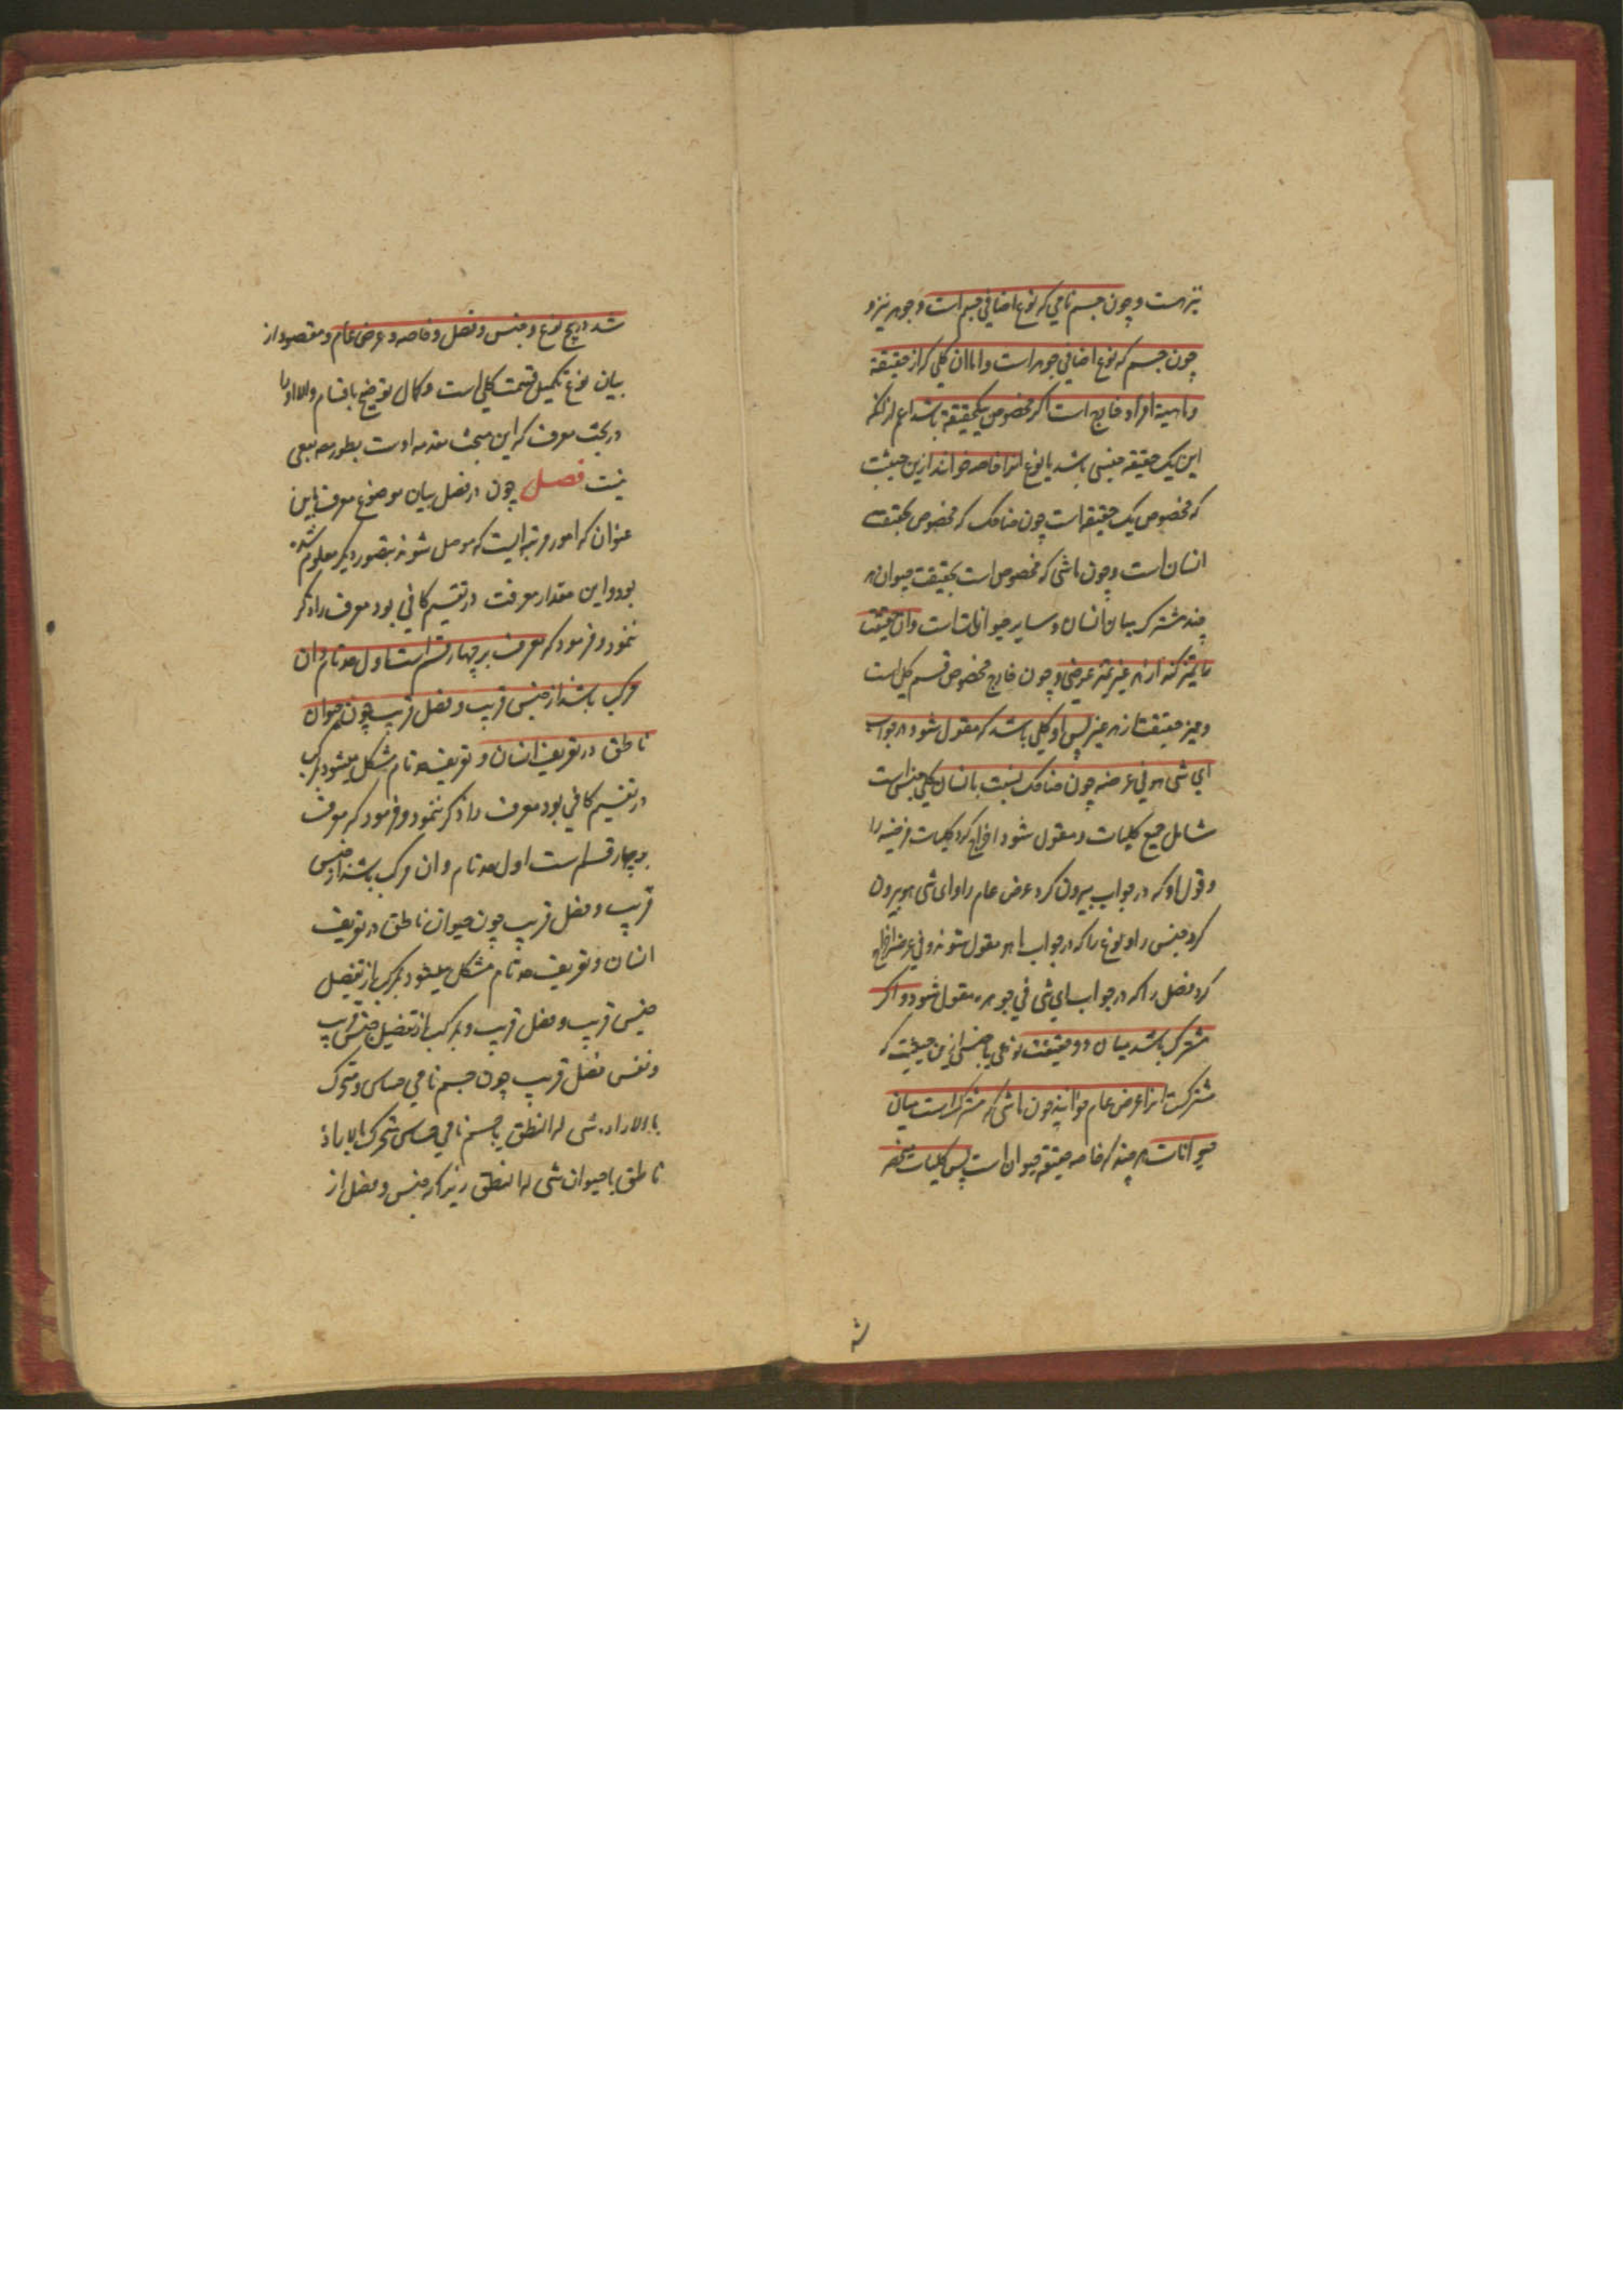 نیز هست و چون جسم نامی که نوع اضافی جسم است و جوهر نیز و
چون جسم که نوع اضافی جوهر است و اما ان کلی که از حقیقة
و ماهیة افراد خارج است اگر مخصوص بیکحقیقة باشد اعم از انکه
این یک حقیقة جنسی باشد یا نوع انرا خاصه خوانند ازین حیثیت
که مخصوص یک حقیقة است چون ضاحک که مخصوص بحقیقت
انسان است و چون ماشی که مخصوص است بحقیقت حیوان هر
چند مشترک بیان انسان و سایر حیوانات است و ان حقیقت
را تمیز کند از هر غیر تمیز عرضی و چون خارج مخصوص قسم کلی است
و ممیز حقیقت از هر غیر پس او کلی باشد که مقول شود در جواب
ای شی هو فی عرضه چون ضاحک نسبت بانسان کلی جنس است
شامل جمیع کلیات و مقول شود اخراج کرد کلیات فرضیه را
و قول او که در جواب بیرون کرد عرض عام را و ای شی هو بیرون
کرد جنس را و نوع را که در جواب ما هو مقول شوند و فی عرضه اخراج
کرد فصل را که در جواب ای شی فی جوهره مقول شود و اگر
مشترک باشد میان دو حقیقت نوعی یا جنسی ازین حیثیت که
مشترکست انرا عرض عام خوانند چون ماشی که مشترک است میان
حیوانات هر چند که خاصه حقیقة حیوان است پس کلیات منحصر
شد
شد در پنج نوع و جنس و فصل و خاصه و عرض عام و مقصود از
بیان نوع تکمیل قسمت کلی است و کمال توضیح باقسام والا او را
در بحث معرف که این مبحث مقدمه اوست بطور مه نفعی
نیست فصل چون در فصل بیان موضوع معرف باین
عنوان که امور مرتبه ایست که موصل شوند بتصور دیگر معلوم شده
بود و این مقدار معرفت در تقسیم کافی بود معرف را ذکر
ننمود و فرمود که معرف بر چهار قسم است اول حد تام و ان
مرکب باشد از جنس قریب و فصل قریب چون حیوان
ناطق در تعریف انسان و تعریف حد تام مشکل میشود بمرکب
در تقسیم کافی بود معرف را ذکر ننمود و فرمود که معرف
بر چهار قسم است اول حد تام و ان مرکب باشد از جنس
قریب و فصل قریب چون حیوان ناطق در تعریف
انسان و تعریف حد تام مشکل میشود بمرکب از تفصیل
جنس قریب و فصل قریب و بمرکب از تفصیل جنس قریب
و نفس فصل قریب چون جسم نامی حساس و متحرک
بالاراده شی له النطق یا جسم نامی حساس متحرک بالاراده
ناطق یا حیوان شی له النطق زیرا که جنس و فصل از